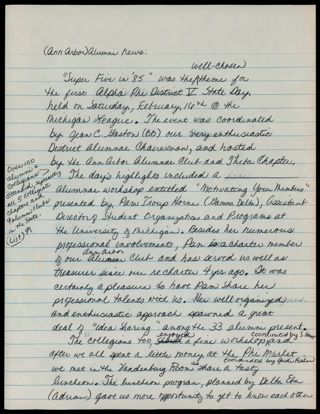 (Ann Arbor) Alumnae News:
well-chosen
"Super Five in '85" was the theme for
the first Alpha Phi District V State Day
held on Saturday, February 16th @ the
Michigan League. The event was coordinated
by Jean C. Gaston (BΘ) our very enthusiastic
District Alumnae Chairwoman, and hosted
by the Ann Arbor Alumnae Club and Theta Chapter.
The day's highlights included a
Alumnae workshop entitled "Motivating Your Members"
presented by Pam Troup Horne (Gamma Delta), Assistant
Director of Student Organizations and Programs at
the University of Michigan. Besides her numerous
professional involvements, Pam is a charter member
of our ann arbor alumnae Club and has served us well as
treasurer since our recharter 4 yrs. ago. It was
certainly a pleasure to have Pam share her
professional talents with us. Her well-organized
and enthusiastic approach spawned a great
deal of "Idea Sharing" among the 33 alumni present.
The collegians too, enjoyed a fine workshop and
coordinated by
after we all spent a little money at the Phi Market
coordinated by
we met in the Vandenburg Room to share a tasty
luncheon. The luncheon program, planned by Delta Eta
(Adrian) gave us more opportunity to get to know each other
Over 100
alumnae &
collegians
attended, representing
all 5 collegiate
chapters and
alumnae clubs
in the state.
(List)